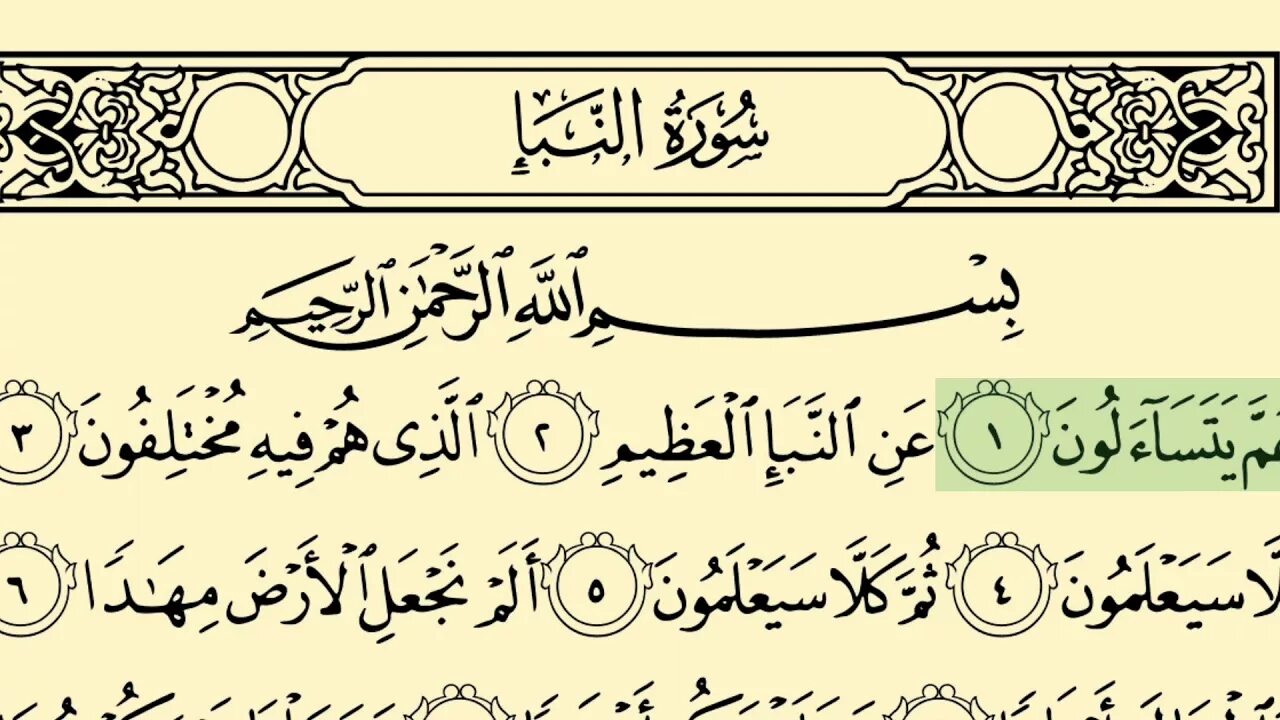 سُورَةُ النَّبَإِ
بِسْمِ ٱللَّهِ ٱلرَّحْمَٰنِ ٱلرَّحِيمِ
عَمَّ يَتَسَآءَلُونَ ١ عَنِ ٱلنَّبَإِ ٱلْعَظِيمِ ٢ ٱلَّذِى هُمْ فِيهِ مُخْتَلِفُونَ ٣
لَّا سَيَعْلَمُونَ ٤ ثُمَّ كَلَّا سَيَعْلَمُونَ ٥ أَلَمْ نَجْعَلِ ٱلْأَرْضَ مِهَٰدًا ٦